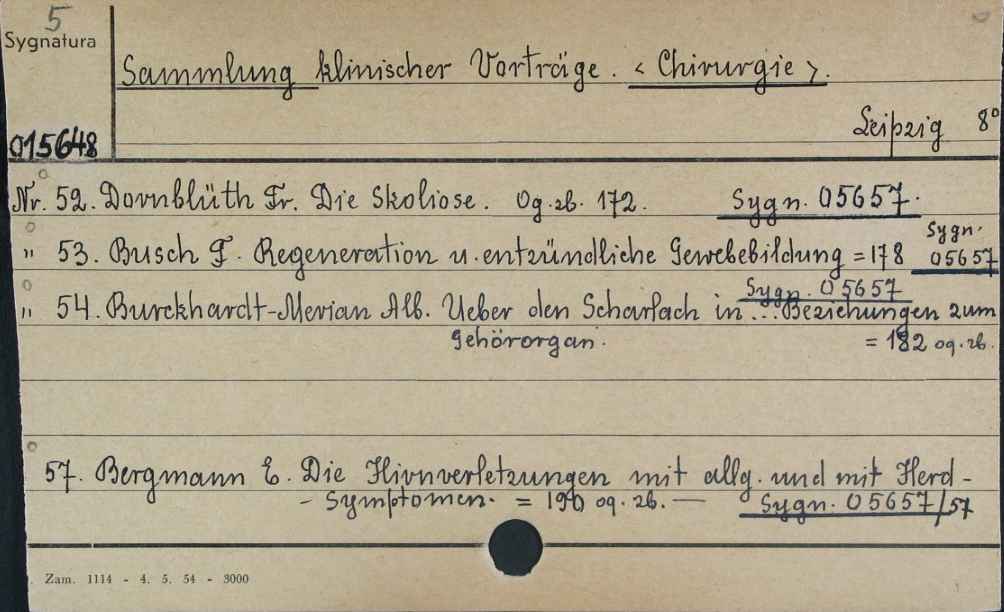 5
Sygnatura
Sammlung klinischer Vorträge. < Chirurgie >.
Leipzig 8°
015648
Nr. 52. Dornblüth Fr. Die Skoliose. Og. zb. 172. Sygn. 05657.
Sygn.
" 53. Busch F. Regeneration u. entzündliche Gewebebildung = 178 05657
Sygn. 05657
" 54. Burckhardt-Merian Alb. Ueber den Scharlach in ... Beziehungen zum
Gehörorgan. = 182 og. zb.
57. Bergmann E. Die Hirnverletzungen mit allg. und mit Herd-
- Symptomen. = 190 og. zb. — Sygn. 05657/57
Zam. 1114 - 4. 5. 54 - 3000